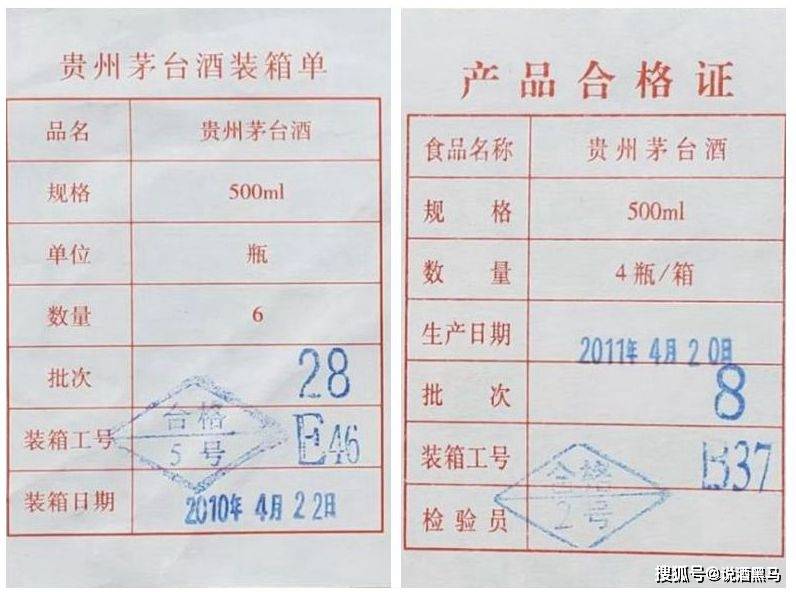 贵州茅台酒装箱单
品名 贵州茅台酒
规格 500ml
单位 瓶
数量 6
批次 28
合格
5号
装箱工号 E46
装箱日期 2010年 4月 22日
产品合格证
食品名称 贵州茅台酒
规 格 500ml
数 量 4瓶/箱
生产日期 2011年 4月 20日
批 次 8
装箱工号 B37
合格
2号
检验员
搜狐号@说酒黑马